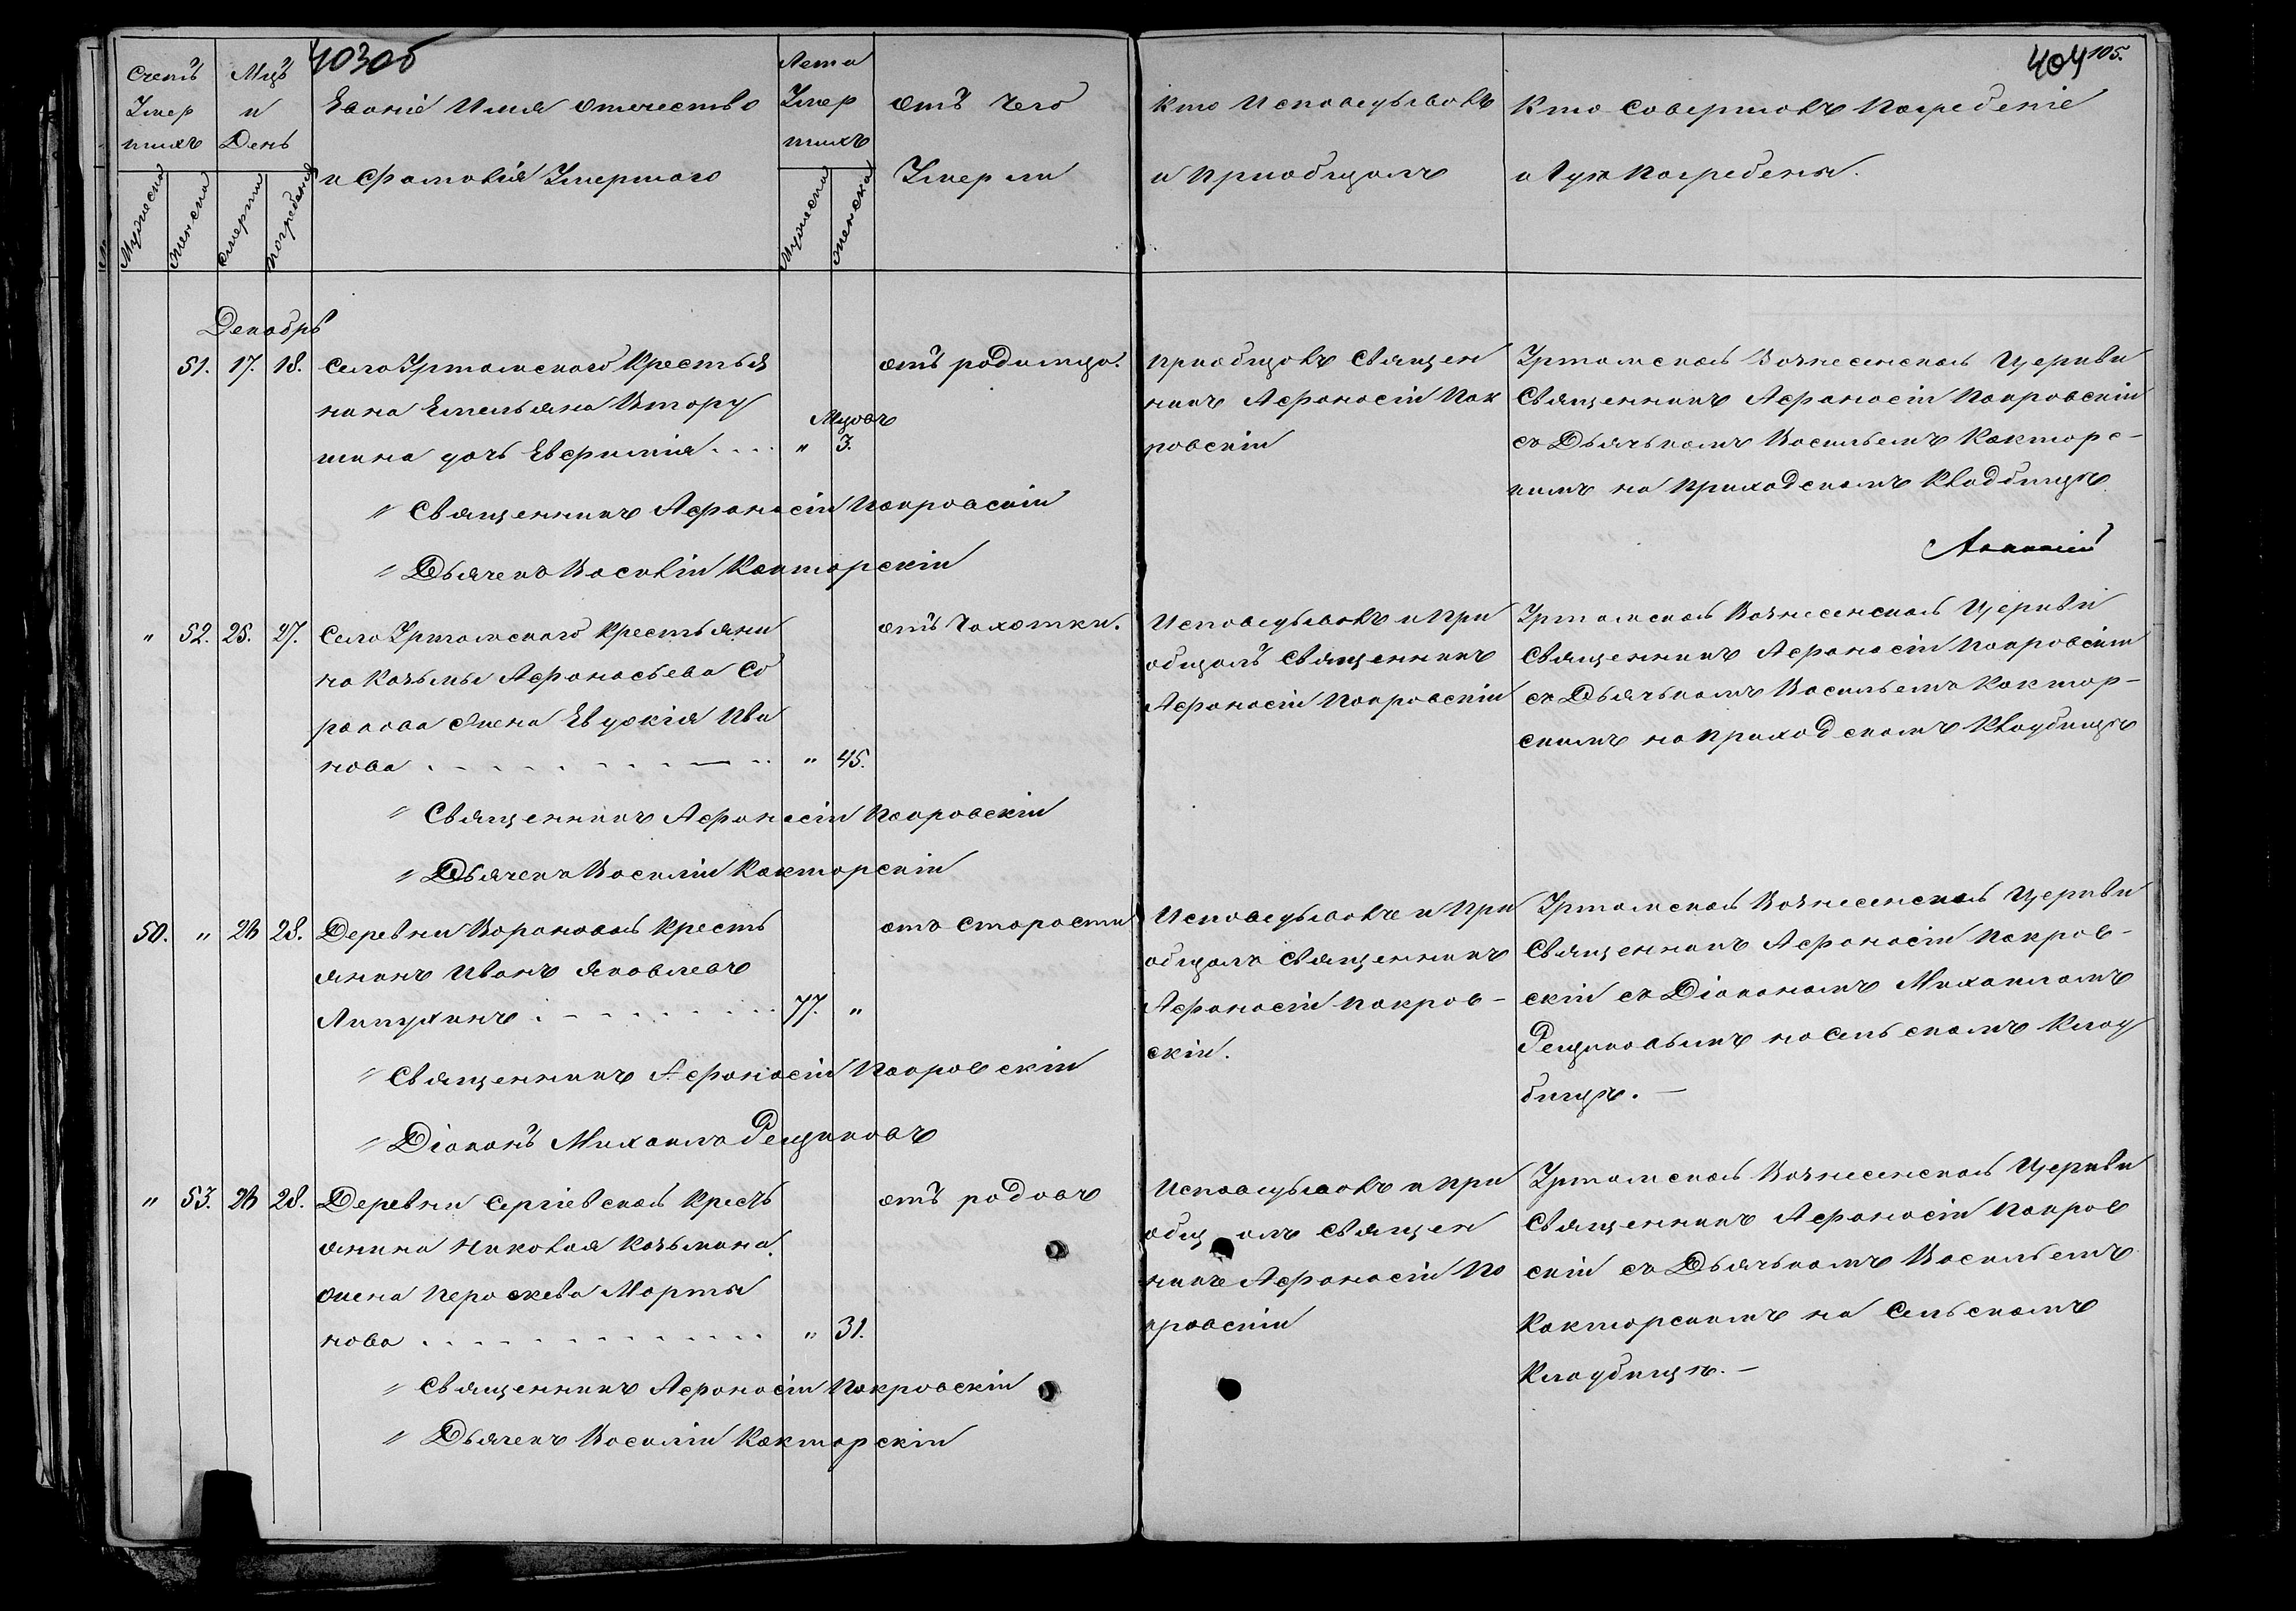 403об
404 105.
Счетъ Умер шихъ
Мцъ и День
Званіе Имя отечество и Фамилія Умершаго
Лета Умер шихъ
отъ чего Умерли
Кто Исповедывалъ и Приобщалъ
Кто Совершалъ Погребеніе и Где Погребены.
Мужеска
женска
смерти
погребения
Мужеска
женска
Декабрь
51. 17. 18. Села Уртамскаго Крестья
нина Емельяна Втору
шина дочь Евфимія .... " Мцовъ 3.
отъ родимца.
приобщалъ Священ
никъ Афонасій Пок
ровскій
Уртамской Вознесенской Церкви
Священникъ Афанасій Покровскій
съ Дьячькомъ Васильемъ Кокторс-
кимъ на Приходскомъ Кладбище
" Священникъ Афанасій Покровскій
" Дьячекъ Василій Кокторскій
" 52. 25. 27. Села Уртамскаго Крестьяни
на Козьмы Афонасьева Со
ро
жена Евдокія Ива
нова " 45.
отъ Чахотки.
Исповедывалъ и При
общалъ Священникъ
Афонасій Покровскій
Уртамской Вознесенской Церкви
Священникъ Афонасій Покровскій
съ Дьячькомъ Васильемъ Коктор-
скимъ на приходскомъ Кладбище
" Священникъ Афонасій Покровскій
" Дьячекъ Василій Кокторскій
50. " 26 28. Деревни Вороновой Кресть
янинъ Иванъ Яковлевъ
Лапухинъ 77. "
отъ Старости
Исповедывалъ и При
общалъ Священникъ
Афонасій Покров-
скій.
Уртамской Вознесенской Церкви
Священникъ Афонасій Покров-
скій съ Діакономъ Михаиломъ
Рещиковымъ на Сельскомъ Клад
бище. —
" Священникъ Афонасій Покровскій
" Діаконъ Михаилъ Рещиковъ
" 53. 26 28. Деревни Сергіевской Кресть
янина Николая Козьмина
жена Пероскева Марты
нова " 31.
отъ родовъ
Исповедывалъ и При
общалъ Священ
никъ Афонасій По
кровскій
Уртамской Вознесенской Церкви
Священникъ Афонасій Покров
скій съ Дьячькомъ Васильемъ
Кокторскимъ на Сельскомъ
Кладбище. —
" Священникъ Афонасій Покровскій
" Дьячекъ Василій Кокторскій